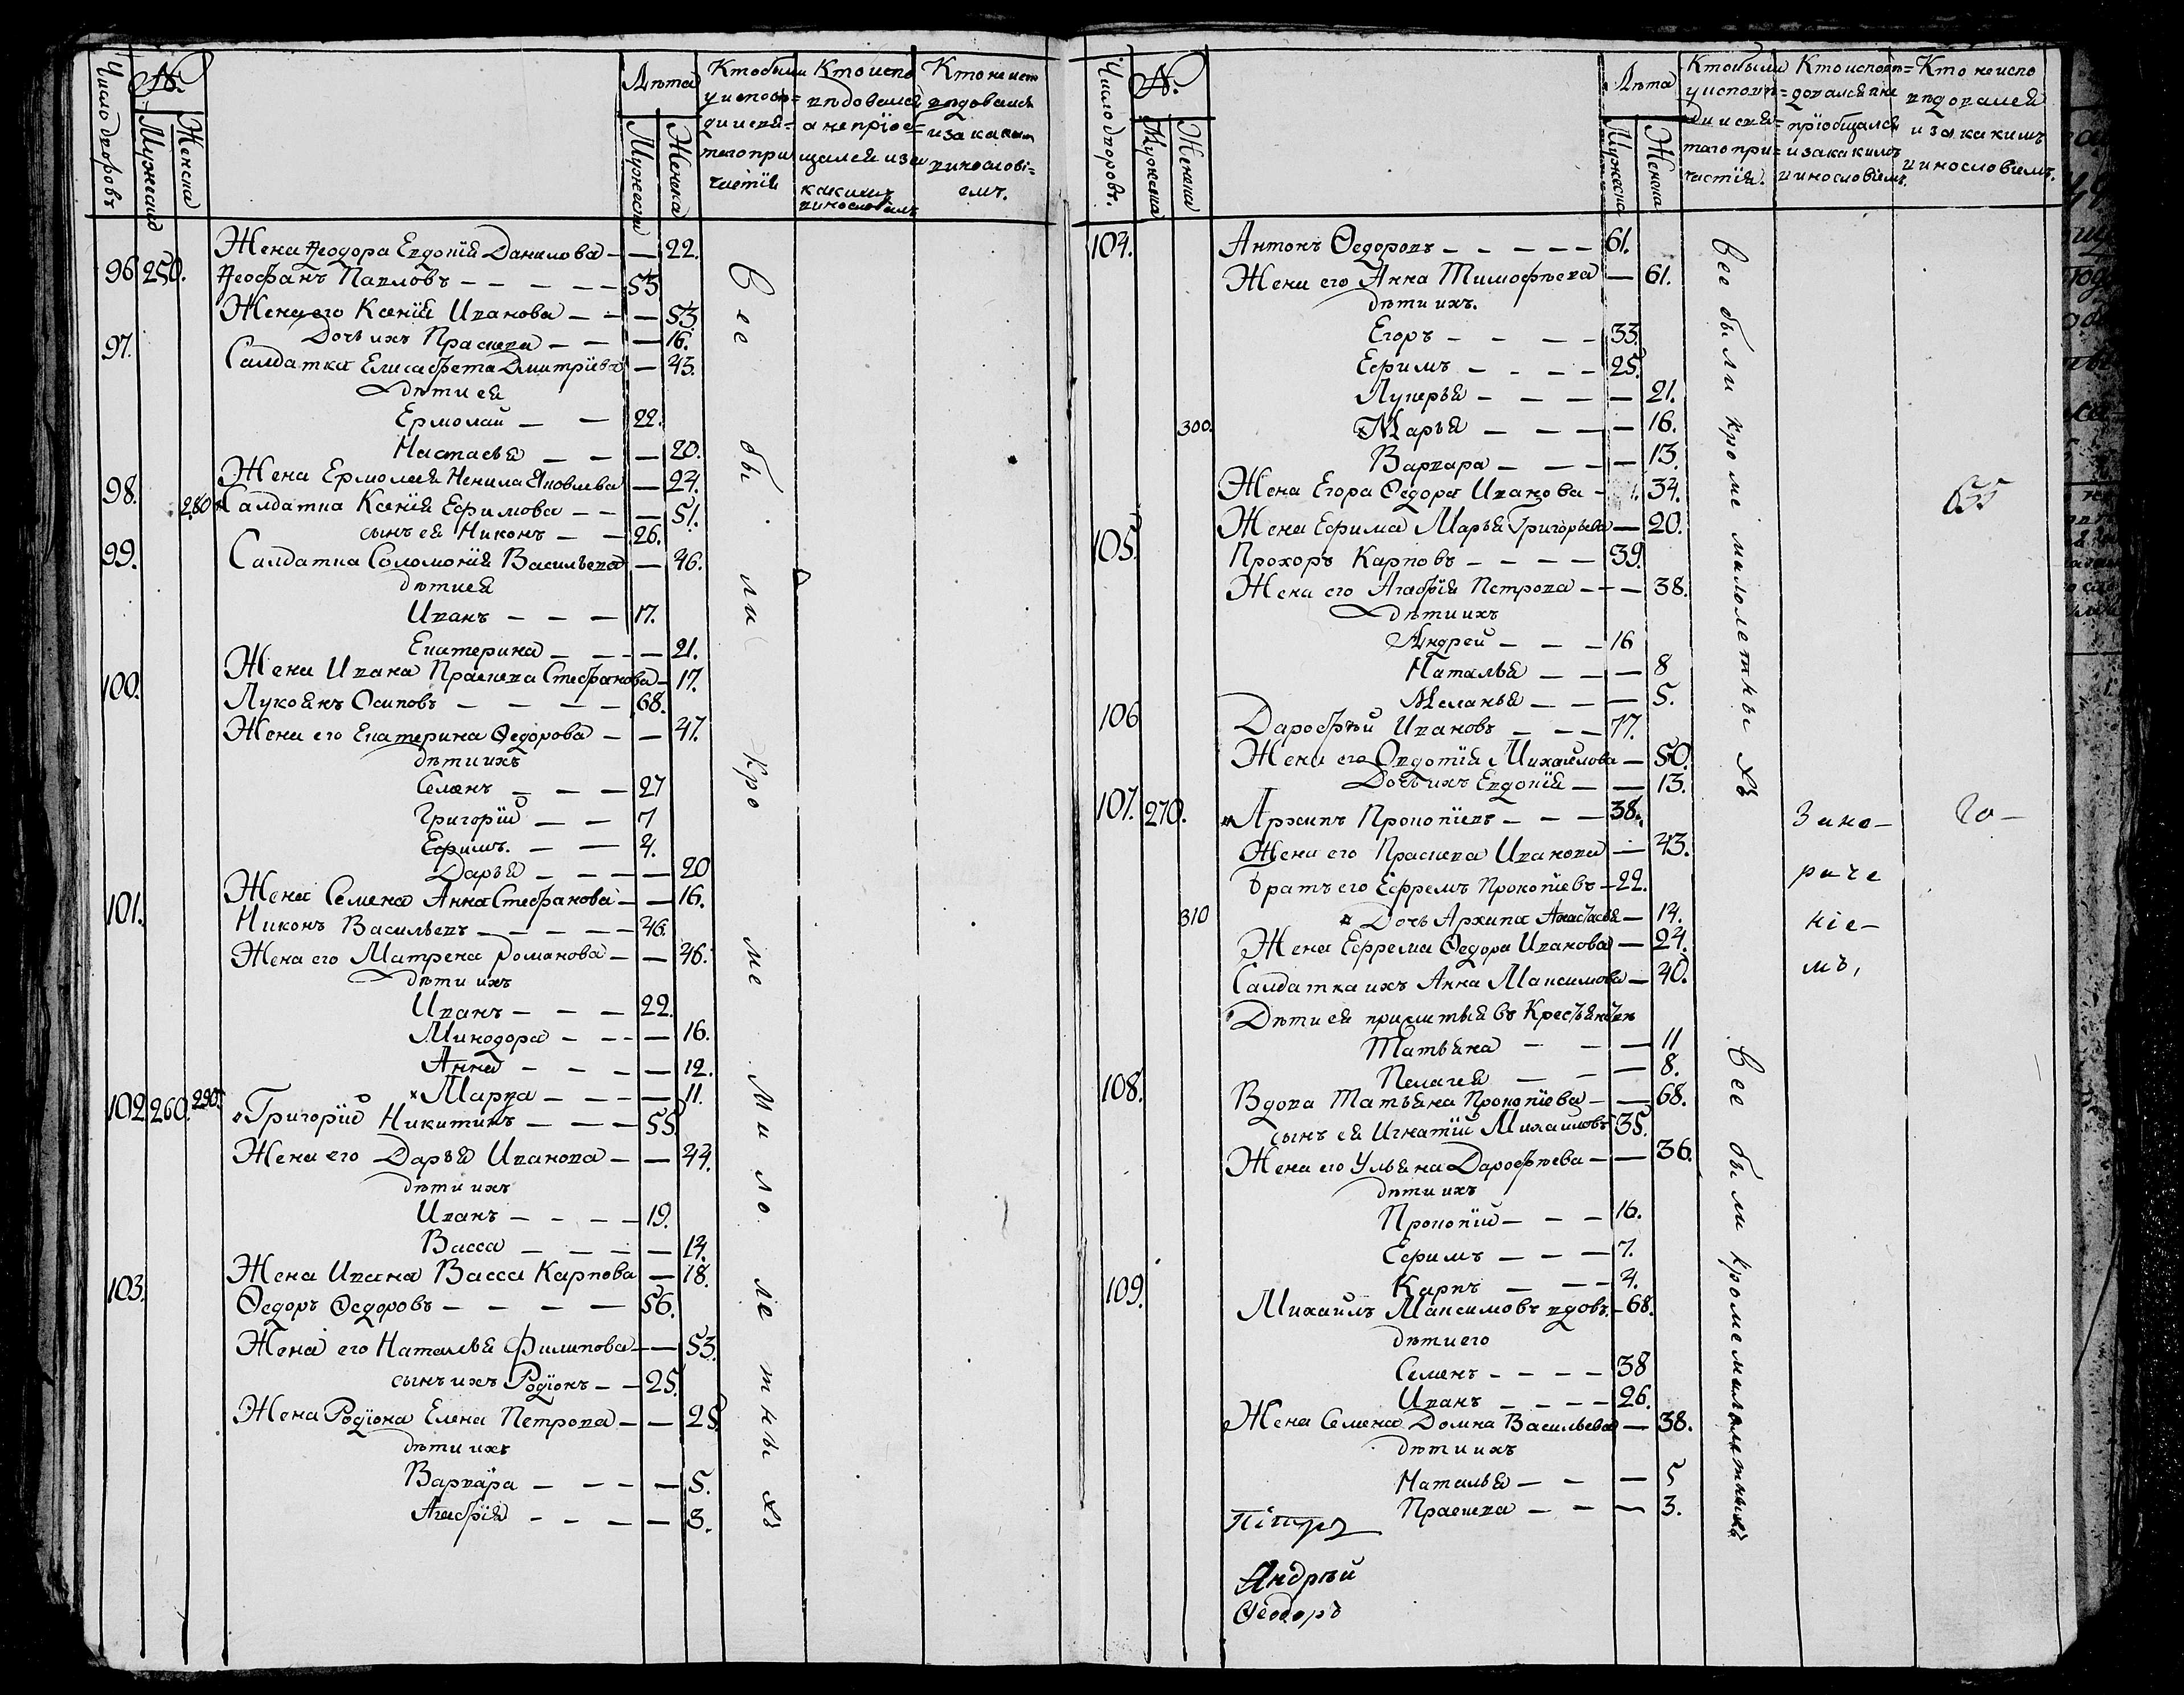 Число дворовъ
№.
Мужеска
Женска
Лѣта
Мужеска
Женска
Кто были
у исповѣ=
ди и свя=
таго при
частїя
Кто испо
вѣдовался
а не прїоб=
щался и за
какимъ
винословіемъ
Кто не исп
вѣдовался
и за каким
винословi=
емъ.
Жена Ѳеодора Евдокїя Данилова — — 22.
96 250. Ѳеофанъ Павловъ — — — — — 53
Жена его Ксенїя Иванова — — — 53
Дочь ихъ Праскева — — — 16.
97. Салдатка Елисафета Дмитрїева — 43.
Дѣти ея
Ермолай — — 22.
Настасья — — — 20.
Жена Ермолая Ненила Яковлева — 24.
98. 280 Салдатка Ксенїя Ефимова — — — 51.
сынъ ея Никонъ — — 26.
99. Салдатка Соломонїя Васильева — 46.
дѣти ея
Иванъ — — — 17.
Екатерина — — — — 21.
Жена Ивана Праскева Стефанова — 17.
100. Лукоянъ Осиповъ — — — — 68.
Жена его Екатерина Ѳедорова — — 47.
дѣти ихъ
Семенъ — — — 27
Григорїй — — 7
Ефимъ. — — 4.
Дарья — — — — 20
Жена Семена Анна Стефанова — — 16.
101. Никонъ Васильевъ — — — — — 46.
Жена его Матрена Романова — — 46.
Дѣти ихъ
Иванъ — — — 22.
Минодора — — — — 16.
Анна — — — — — 12.
х Марва — — — — 11.
102 260. 290. Григорїй Никитинъ — — — 55
Жена его Дарья Иванова — — 44.
дѣти ихъ
Иванъ — — — — 19.
Васса — — — — — 14.
Жена Ивана Васса Карпова — 18.
103. Ѳедоръ Ѳедоровъ — — — — 56.
Жена его Наталья Филипова — — 53.
сынъ ихъ Родїонъ — — 25.
Жена Родїона Елена Петрова — — 25
дѣти ихъ
Варвара — — — — — 5.
Агафїя — — — — — 3.
Все были кроме малолетныхъ
Число дворовъ.
№.
Мужеска
Женска
Лѣта
Мужеска
Женска
Кто были
у исповѣ=
ди и свя=
таго при=
частїя.
Кто исповѣ=
довался а не
прїобщался
и за какимъ
винословїемъ.
Кто не испо
вѣдовался
и за какимъ
винословїемъ.
104. Антонъ Ѳедоровъ — — — — — 61.
Жена его Анна Тимофѣева — 61.
дѣти ихъ.
Егоръ — — — — 33.
Ефимъ — — — — 25.
Лукерья — — — — 21.
300. Марья — — — — 16.
Варвара — — — — 13.
Жена Егора Ѳедора Иванова — 34.
Жена Ефима Марья Григорьева — 20.
105. Прохоръ Карповъ — — — — 39.
Жена его Агафїя Петрова — — 38.
Дѣти ихъ
Андрей — — — 16
Наталья — — — 8
Меланья — — — 5.
106 Дарофѣй Ивановъ — — — 77.
Жена его Овдотїя Михаилова — 50.
Дочь ихъ Евдокїя — — 13.
107. 270. Архипъ Прокопїевъ — — — 38.
Жена его Праскева Иванова — 43.
братъ его Ефремъ Прокопїевъ — 22.
310 Дочь Архипа Анастасья — 14.
Жена Ефрема Ѳедора Иванова — 24.
Салдатка ихъ Анна Максимова — 40.
Дѣти ея
Татьяна — — — 11
Пелагея — — — 8.
108. Вдова Татьяна Прокопїева — — 68.
сынъ ея Игнатїй Михаиловъ 35.
Жена его Ульяна Дарофѣева — — 36.
дѣти ихъ
Прокопїй — — — 16.
Ефимъ — — — 7.
Карпъ — — — 4.
109. Михаилъ Максимовъ вдовъ. — 68.
дѣти его
Семенъ — — — — 38
Иванъ — — — — 26.
Жена Семена Домна Васильева — 38.
дѣти ихъ
Наталья — — — 5
Праскева — — — 3.
Все были кроме малолетныхъ
Зано—
Все были кроме малолетныхъ
Пїтръ
Андрѣй
Ѳеодоръ